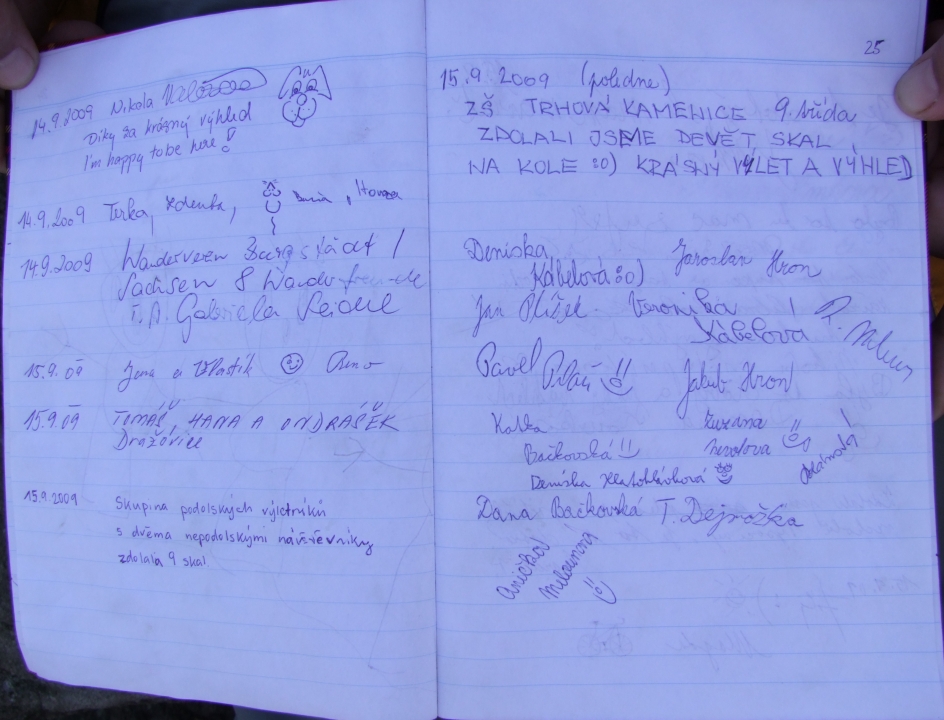 14.9.2009 Nikola
Díky za krásný výhled
I'm happy to be here!
14.9.2009 Terka, Zdenka, Honza
14.9.2009 Wanderverein Burgstädt /
Sachsen 8 Wanderfreunde
Gabriela
15.9.09 Jana a Vlastík
15.9.09 TOMÁŠ, HANA A ONDRÁŠEK
15.9.2009 Skupina podolských výletníků
s dvěma nepodolskými návštěvníky
zdolala 9 skal
25
15.9.2009 (poledne)
ZŠ TRHOVÁ KAMENICE 9. třída
ZDOLALI JSME DEVĚT SKAL
NA KOLE :o) KRÁSNÝ VÝLET A VÝHLED
Deniska
Kábelová :o)
Jaroslav Hron
Jan
Veronika
Kábelová
Pavel
Jakub Hron
Katka
Bačkovská
Zuzana
Deniska
Dana Bačkovská T. Dejražka
Anička